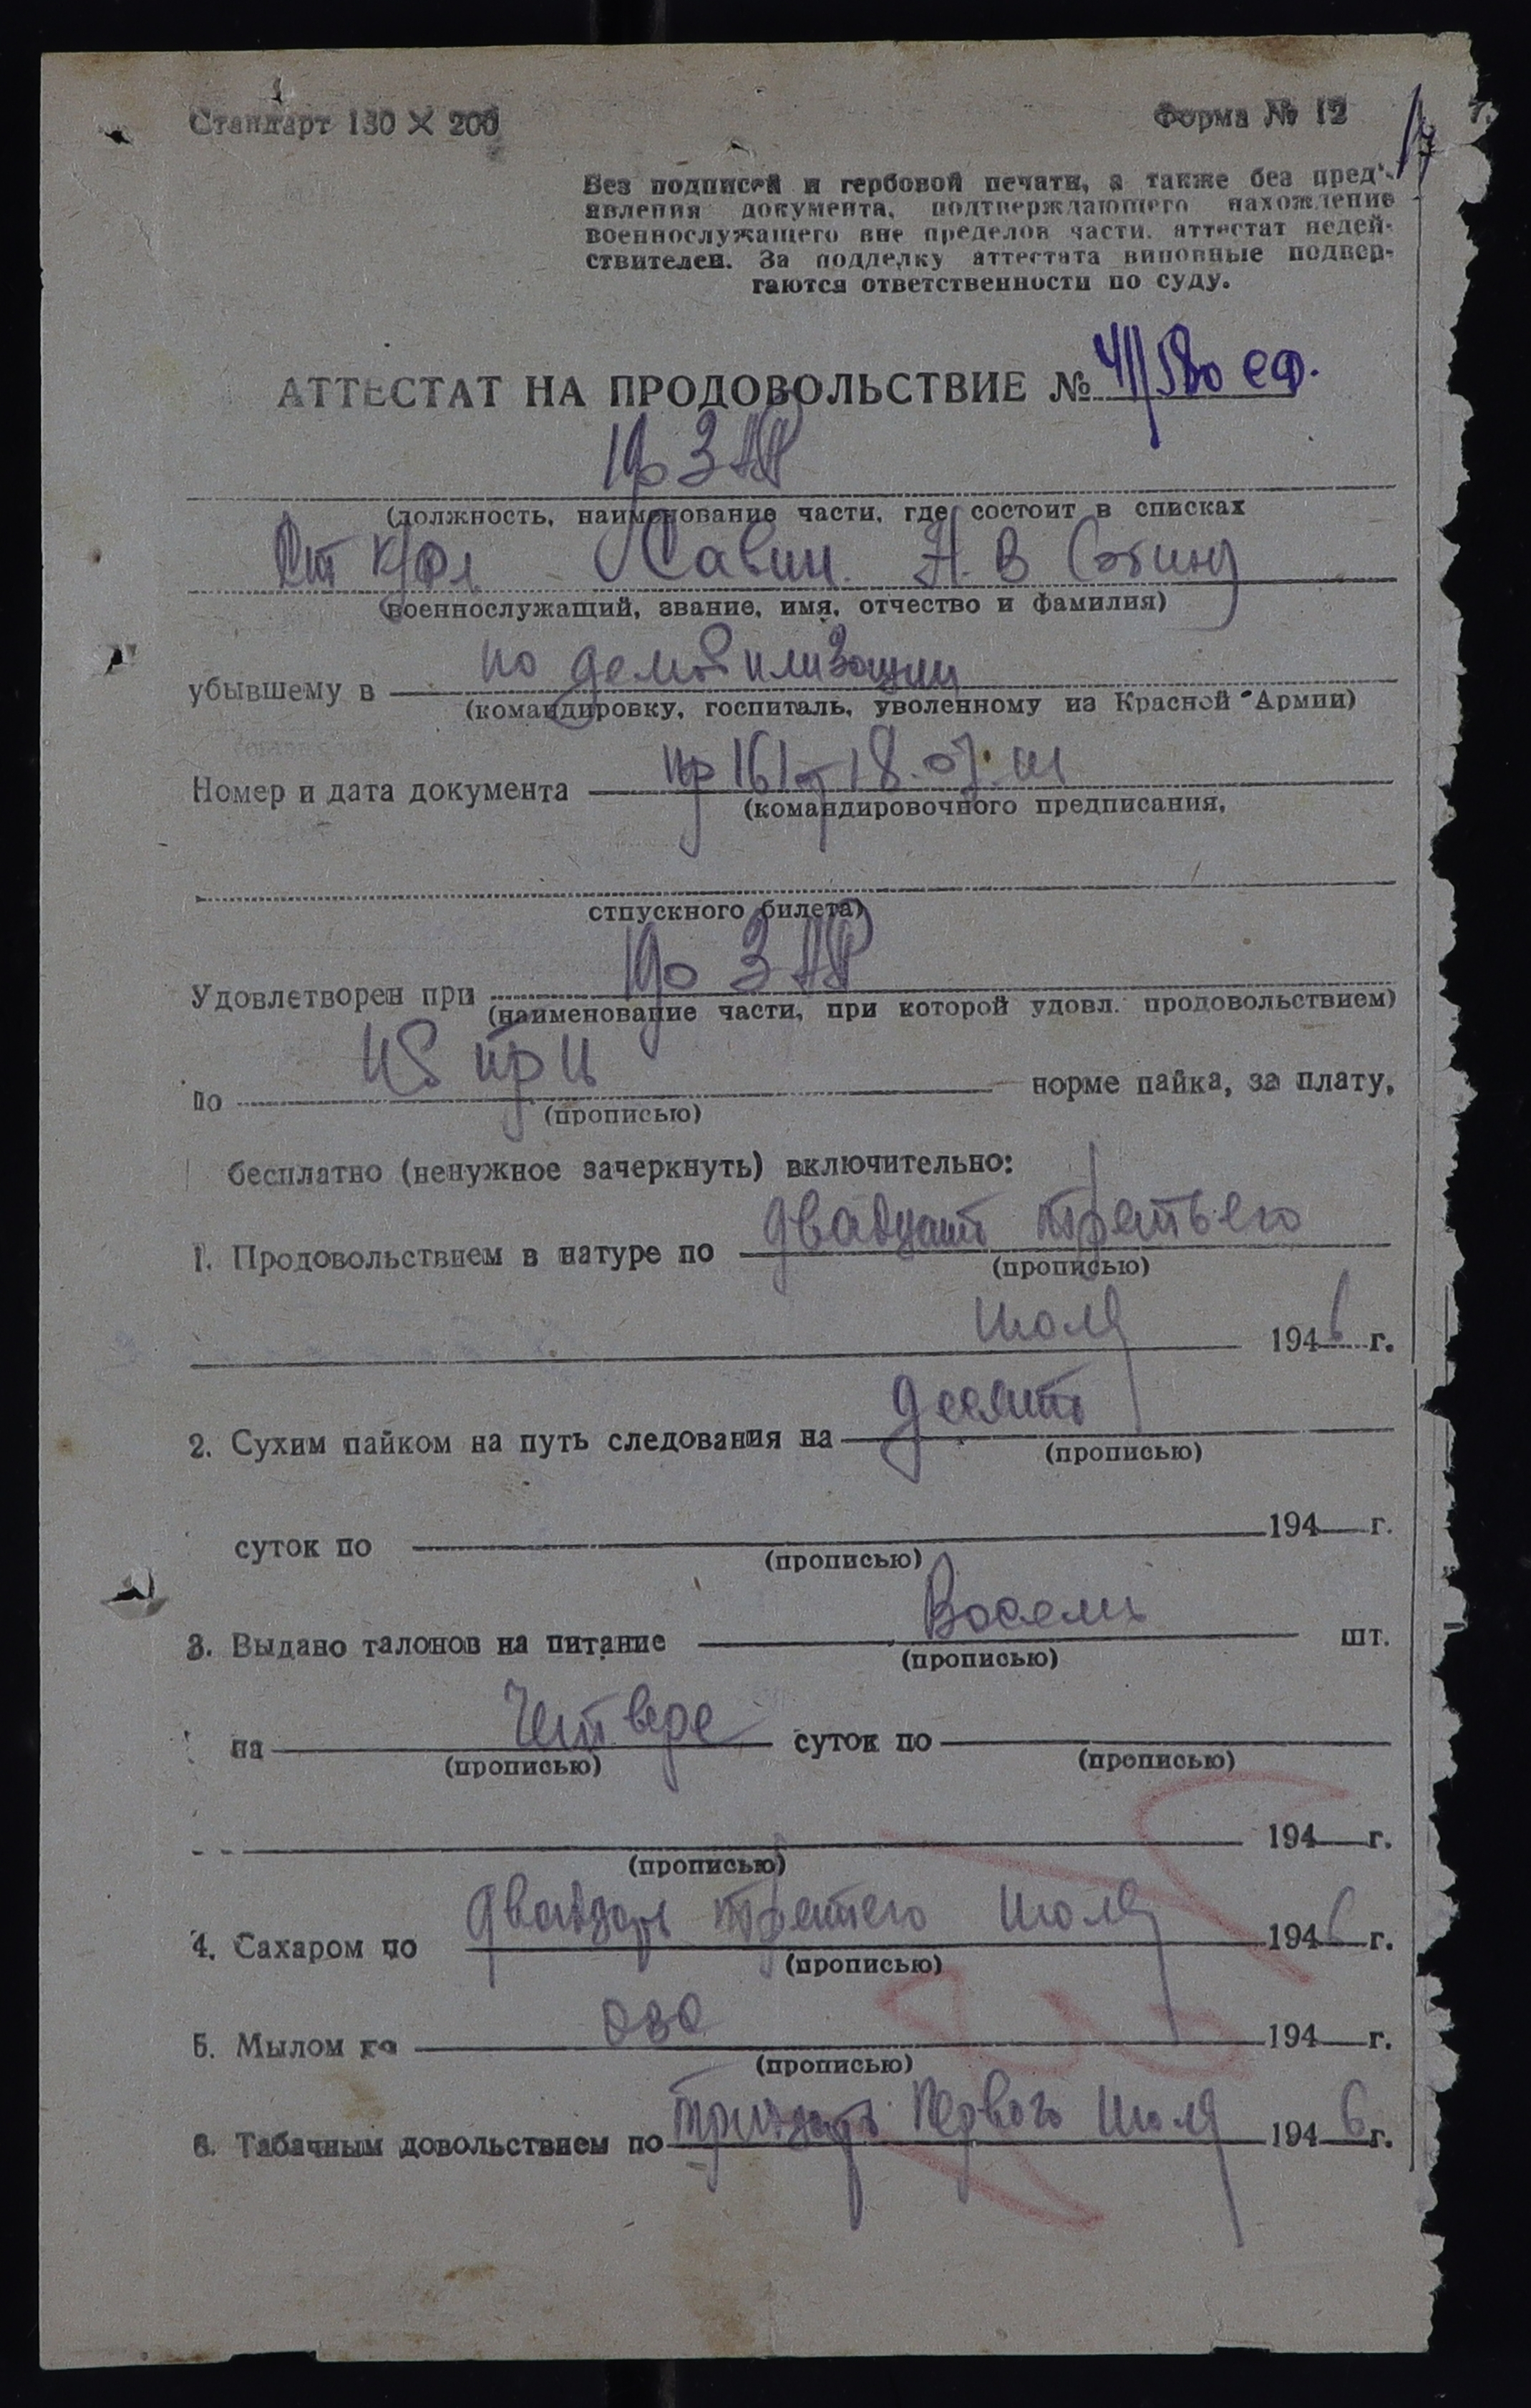 Стандарт 130 × 200
Форма № 12
17
Без подписей и гербовой печати, а также без пред'-
явления документа, подтверждающего нахождение
военнослужащего вне пределов части, аттестат недей-
ствителен. За подделку аттестата виновные подвер-
гаются ответственности по суду.
АТТЕСТАТ НА ПРОДОВОЛЬСТВИЕ №
(должность, наименование части, где состоит в списках
Савин Н. В
(военнослужащий, звание, имя, отчество и фамилия)
убывшему в по демобилизации
(командировку, госпиталь, уволенному из Красной Армии)
Номер и дата документа пр 161 от 18.07.
(командировочного предписания,
отпускного билета)
Удовлетворен при
(наименование части, при которой удовл. продовольствием)
по норме пайка, за плату,
(прописью)
бесплатно (ненужное зачеркнуть) включительно:
1. Продовольствием в натуре по двадцать третьего
(прописью)
июля 1946 г.
2. Сухим пайком на путь следования на десять
(прописью)
суток по 194 г.
(прописью)
3. Выдано талонов на питание Восемь шт.
(прописью)
на Четверо суток по
(прописью) (прописью)
194 г.
(прописью)
4. Сахаром по двадцать третьего июля 1946 г.
(прописью)
5. Мылом по 194 г.
(прописью)
6. Табачным довольствием по тридцать Первого Июля 1946 г.